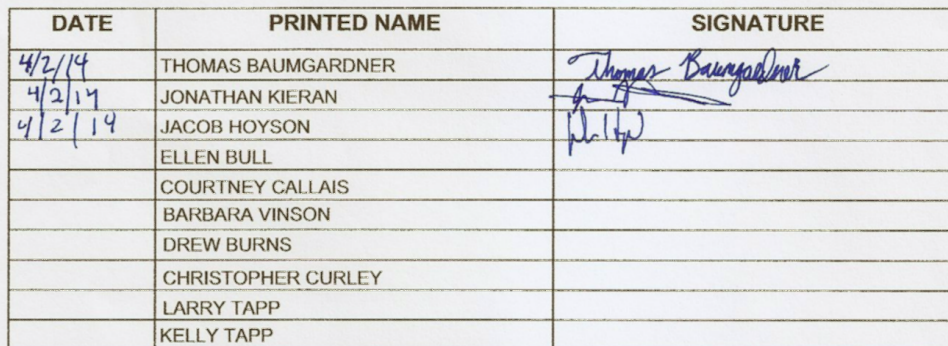 DATE PRINTED NAME SIGNATURE
4/2/14 THOMAS BAUMGARDNER Thomas Baumgardner
4/2/14 JONATHAN KIERAN
4/2/14 JACOB HOYSON
ELLEN BULL
COURTNEY CALLAIS
BARBARA VINSON
DREW BURNS
CHRISTOPHER CURLEY
LARRY TAPP
KELLY TAPP